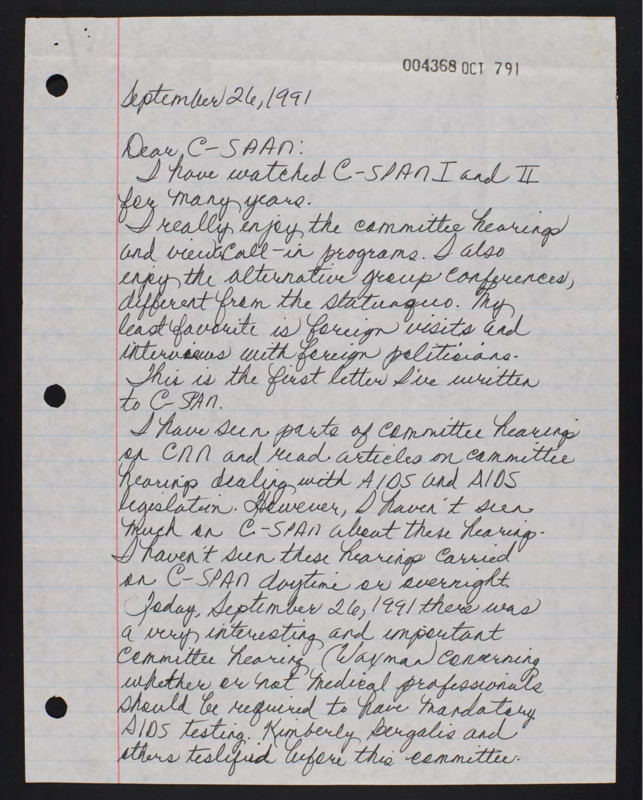 004368 OCT 791
September 26, 1991
Dear C-SPAN:
I have watched C-SPAN I and II
for many years.
I really enjoy the committee hearings
and view call-in programs. I also
enjoy the alternative group conferences,
different from the statuaquo. My
least favorite is foreign visits and
interviews with foreign politicians.
This is the first letter I've written
to C-SPAN.
I have seen parts of committee hearings
on CNN and read articles on committee
hearings dealing with AIDS and AIDS
legislation. However, I haven't seen
much on C-SPAN about these hearings.
I haven't seen these hearings carried
on C-SPAN daytime or overnight.
Today, September 26, 1991 there was
a very interesting and important
committee hearing (Waxman) concerning
whether or not medical professionals
should be required to have mandatory
AIDS testing. Kimberly Bergalis and
others testified before this committee.